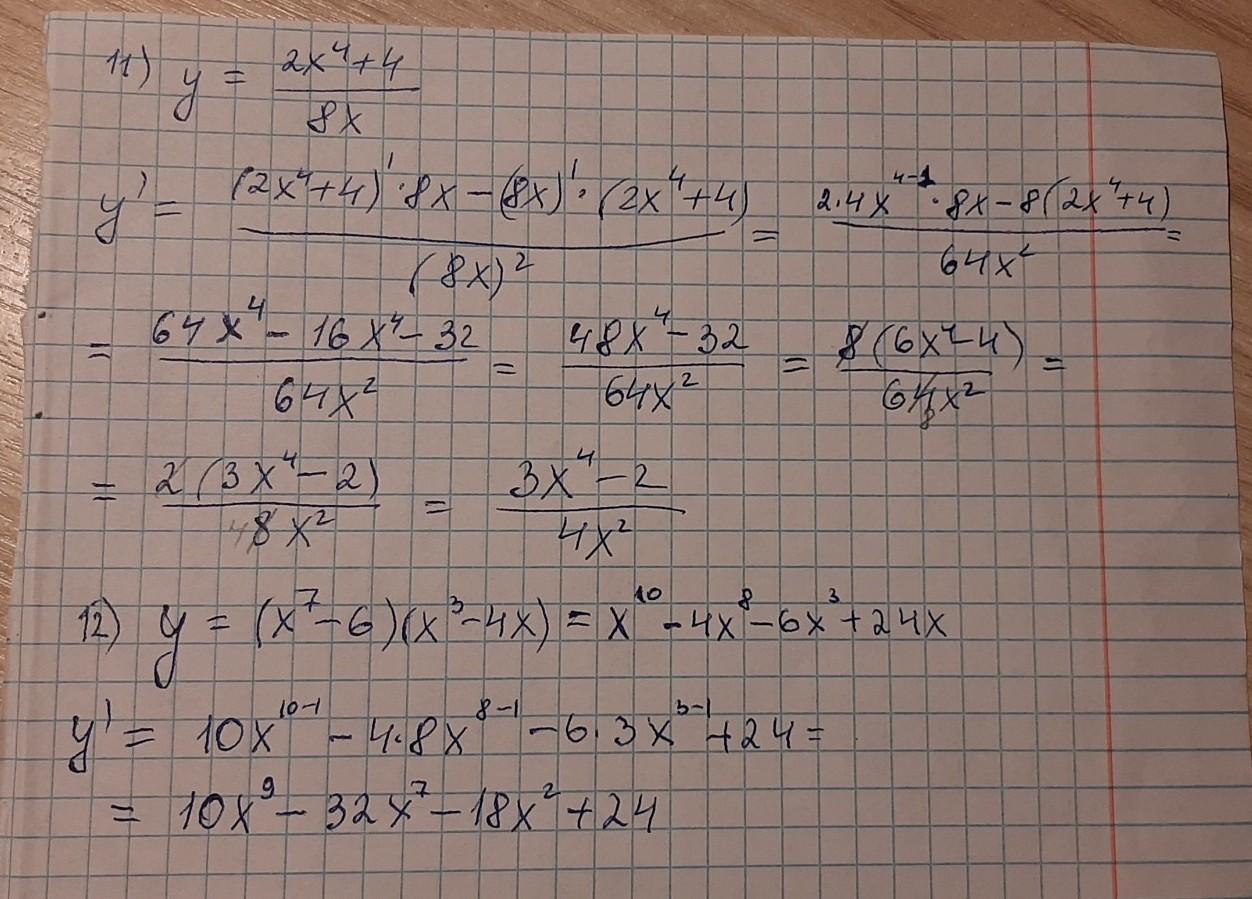 11) y = (2x⁴+4)/(8x)
y' = ((2x⁴+4)'·8x−(8x)'·(2x⁴+4))/((8x)²) = (2·4x⁴⁻¹·8x−8(2x⁴+4))/(64x²) =
= (64x⁴−16x⁴−32)/(64x²) = (48x⁴−32)/(64x²) = (8(6x⁴−4))/(64x²) =
= (2(3x⁴−2))/(8x²) = (3x⁴−2)/(4x²)
12) y = (x⁷−6)(x³−4x) = x¹⁰−4x⁸−6x³+24x
y' = 10x¹⁰⁻¹−4·8x⁸⁻¹−6·3x³⁻¹+24 =
= 10x⁹−32x⁷−18x²+24